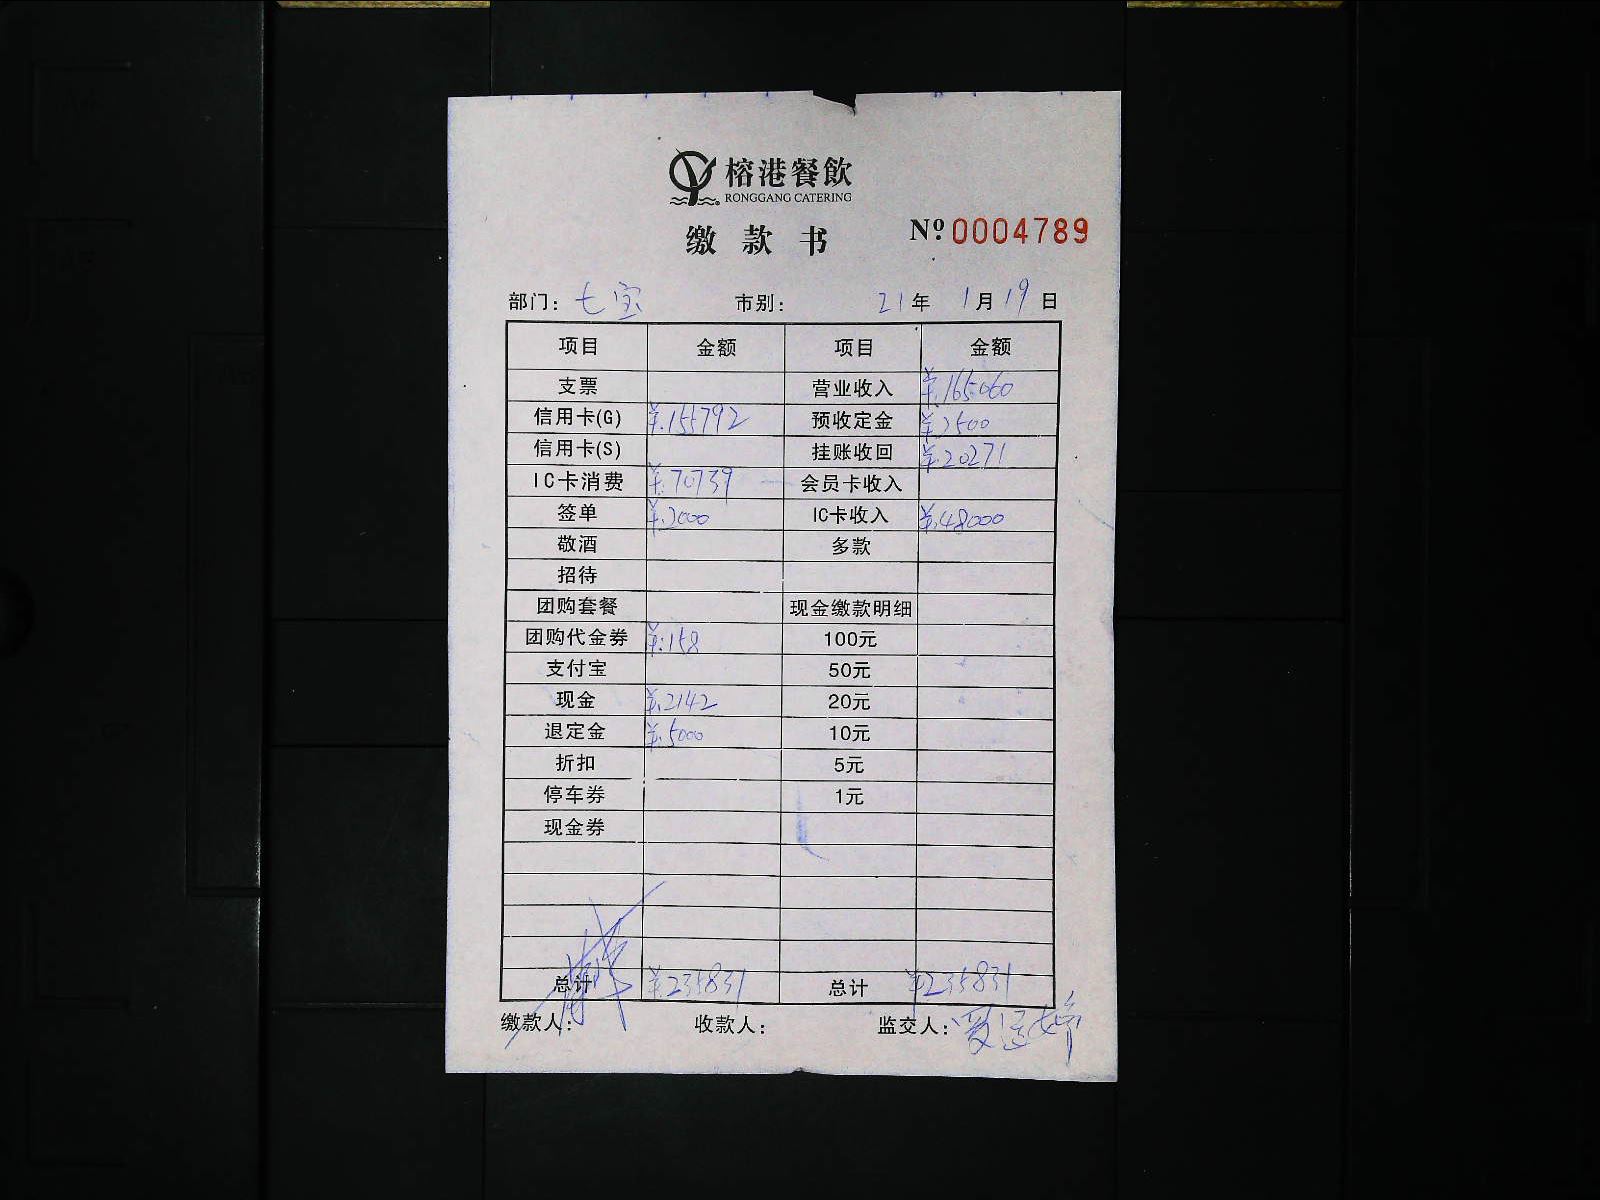 榕港餐飲
RONGGANG CATERING
缴款书 Nº 0004789
部门: 七宝 市别: 21年 1月 19日
项目 金额 项目 金额
支票 营业收入 ¥:165060
信用卡(G) ¥:155792 预收定金 ¥:2500
信用卡(S) 挂账收回 ¥:20271
IC卡消费 ¥:70739 会员卡收入
签单 ¥:2000 IC卡收入 ¥:48000
敬酒 多款
招待
团购套餐 现金缴款明细
团购代金券 ¥:158 100元
支付宝 50元
现金 ¥:2142 20元
退定金 ¥:5000 10元
折扣 5元
停车券 1元
现金券
总计 ¥:235831 总计 ¥235831
缴款人: 收款人: 监交人: